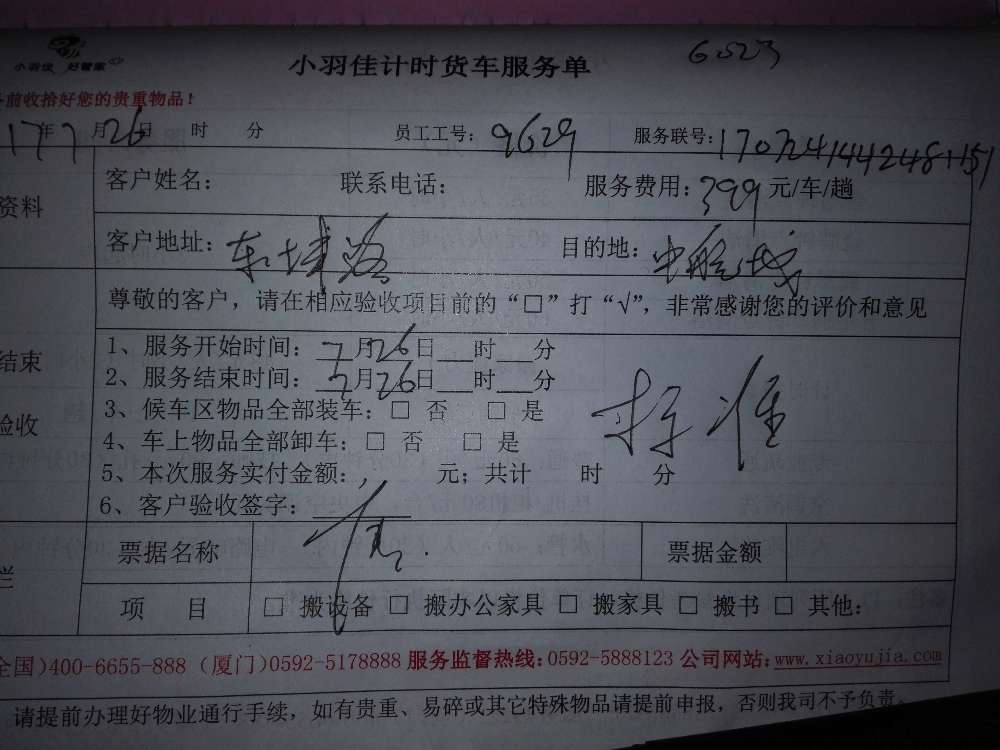 小羽佳 好管家
小羽佳计时货车服务单
6523
前收拾好您的贵重物品!
17年7月26日 时 分 员工工号:9629 服务联号:
资料
客户姓名: 联系电话: 服务费用:399元/车/趟
客户地址:东埔路 目的地:中航城
尊敬的客户,请在相应验收项目前的“□”打“√”,非常感谢您的评价和意见
结束
验收
1、服务开始时间:7月26日___时___分
2、服务结束时间:7月26日___时___分
3、候车区物品全部装车:□ 否 □ 是
标准
4、车上物品全部卸车:□ 否 □ 是
5、本次服务实付金额: 元;共计 时 分
6、客户验收签字:
栏
票据名称 票据金额
项 目 □ 搬设备 □ 搬办公家具 □ 搬家具 □ 搬书 □ 其他:
全国)400-6655-888 (厦门)0592-5178888 服务监督热线:0592-5888123 公司网站:www.xiaoyujia.com
请提前办理好物业通行手续,如有贵重、易碎或其它特殊物品请提前申报,否则我司不予负责。